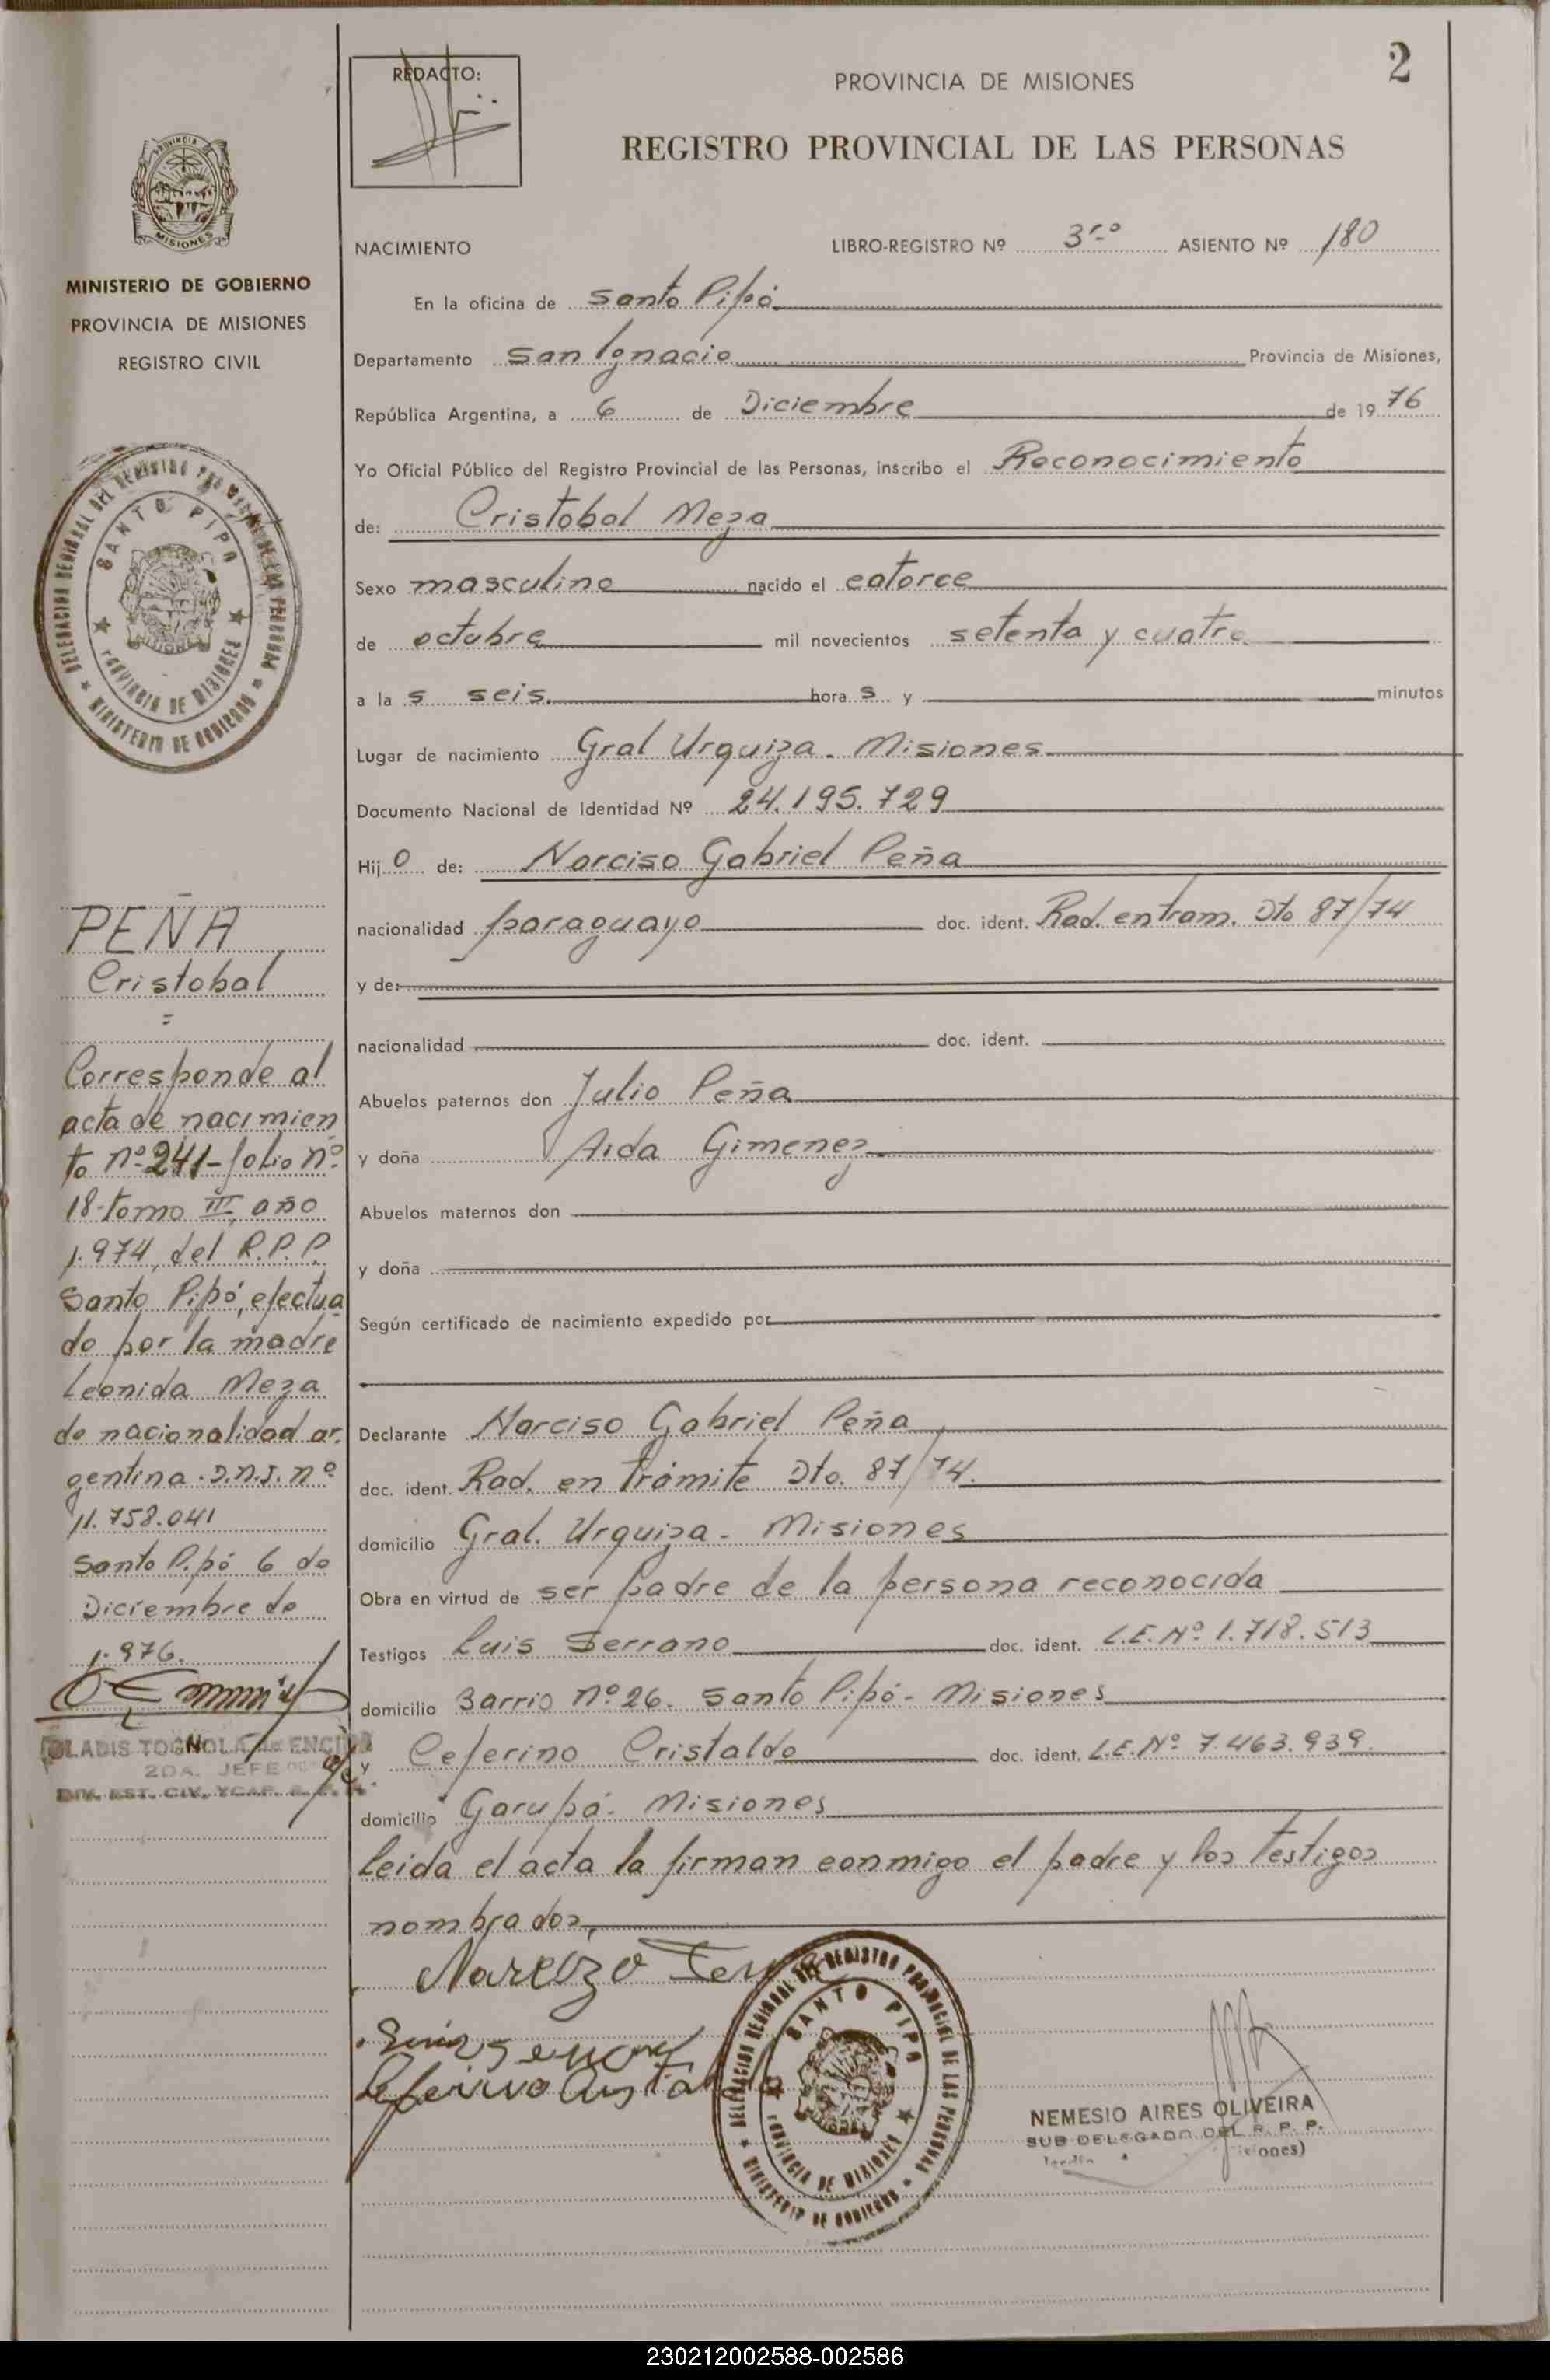 2
REDACTO:
PROVINCIA DE MISIONES
REGISTRO PROVINCIAL DE LAS PERSONAS
NACIMIENTO LIBRO-REGISTRO Nº 3ro ASIENTO Nº 180
En la oficina de Santo Pipó
Departamento San Ignacio Provincia de Misiones,
República Argentina, a 6 de Diciembre de 1976
Yo Oficial Público del Registro Provincial de las Personas, inscribo el Reconocimiento
de: Cristobal Meza
Sexo masculino nacido el catorce
de octubre mil novecientos setenta y cuatro
a la s seis. hora s y minutos
Lugar de nacimiento Gral Urquiza - Misiones
Documento Nacional de Identidad Nº 24.195.729
Hij o de: Narciso Gabriel Peña
nacionalidad paraguayo doc. ident. Rad. en tram. Dto 87/74
y de:
nacionalidad doc. ident.
Abuelos paternos don Julio Peña
y doña Aida Gimenez
Abuelos maternos don
y doña
Según certificado de nacimiento expedido por
Declarante Narciso Gabriel Peña
doc. ident. Rad. en trámite Dto. 87/74.
domicilio Gral. Urquiza - Misiones
Obra en virtud de ser padre de la persona reconocida
Testigos Luis Serrano doc. ident. L.E. Nº 1.718.513
domicilio Barrio nº 26. Santo Pipó - Misiones
y Ceferino Cristaldo doc. ident. L.E. Nº 7.463.939.
domicilio Garupá - Misiones
leida el acta la firman conmigo el padre y los testigos
nombrados,
NEMESIO AIRES OLIVEIRA
SUB DELEGADO DEL R. P. P.
DELEGACION REGIONAL DEL REGISTRO PROVINCIAL DE LAS PERSONAS
SANTO PIPO
PROVINCIA DE MISIONES
MINISTERIO DE GOBIERNO
PROVINCIA DE
MISIONES
MINISTERIO DE GOBIERNO
PROVINCIA DE MISIONES
REGISTRO CIVIL
DELEGACION REGIONAL DEL REGISTRO PROVINCIAL DE LAS PERSONAS
SANTO PIPO
PROVINCIA DE MISIONES
MINISTERIO DE GOBIERNO
PEÑA
Cristobal
=
Corresponde al
acta de nacimien
to nº 241 - folio nº
18 - tomo III, año
1.974, del R.P.P.
Santo Pipó, efectua
do por la madre
Leonida Meza
de nacionalidad ar
gentina. D.N.I. nº
11.758.041
Santo Pipó 6 de
Diciembre de
1.976.
GLADIS TOGNOLA de
2DA. JEFE
DIV. EST. CIV. YCAP.
230212002588-002586